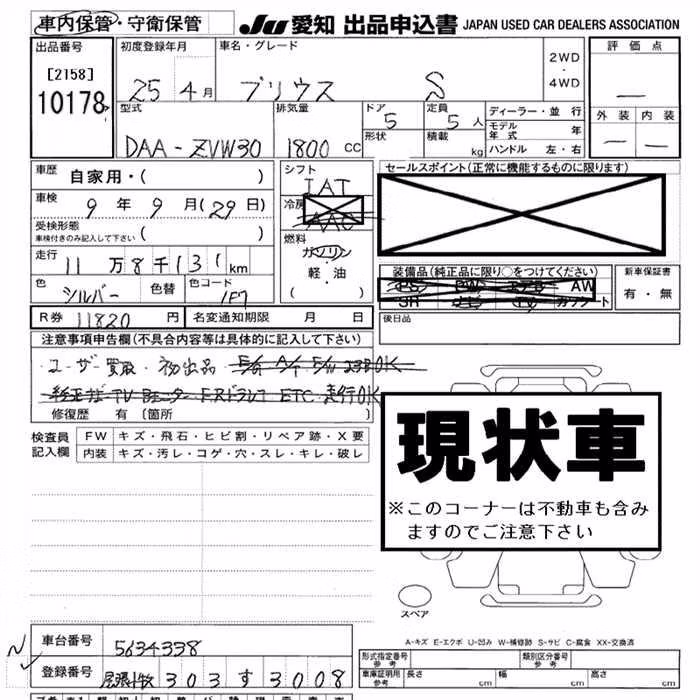 車内保管・守衛保管
JU 愛知 出品申込書 JAPAN USED CAR DEALERS ASSOCIATION
出品番号 初度登録年月 車名・グレード 2WD・4WD 評価点
[2158]
10178
25 4月 プリウス S
外装 内装
型式 排気量 ドア 5 定員 5人 ディーラー・並行
DAA-ZVW30 1800 CC
形状 積載 kg モデル年式 年
ハンドル 左・右
車歴 自家用・( )
シフト IAT
セールスポイント(正常に機能するものに限ります)
車検 9年9月(29日)
冷房 AAC
受検形態 ( )
車検付きのみ記入して下さい
燃料 ガソリン・軽・油
( )
走行 11万8千131km
装備品(純正品に限り○をつけてください) 新車保証書
AW
カワ シート
有・無
色 シルバー 色替 色コード 1F7
後日品
R券 11820円 名変通知期限 月 日
注意事項申告欄(不具合内容等は具体的に記入して下さい)
・ユーザー買取・初出品
ETC 走行OK
修復歴 有〔箇所 〕
検査員記入欄
FW キズ・飛石・ヒビ割・リペア跡・X要
内装 キズ・汚レ・コゲ・穴・スレ・キレ・破レ
現状車
※このコーナーは不動車も含み
ますのでご注意下さい
スペア
A-キズ E-エクボ U-凹み W-補修跡 S-サビ C-腐食 XX-交換済
車台番号 5634338
形式指定番号 参考 類別区分番号 参考
登録番号 尾張小牧 303す3008
車庫証明用 参考 長さ cm 幅 cm 高さ cm